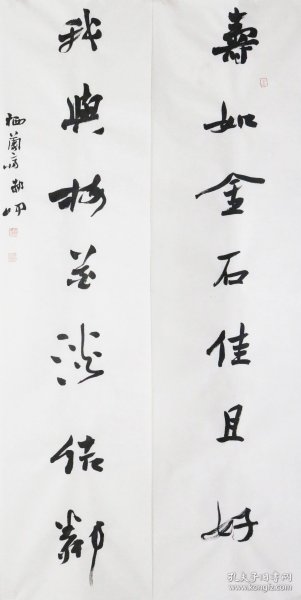 壽如金石佳且好
我與梅花淡結鄰
孔夫子旧书网